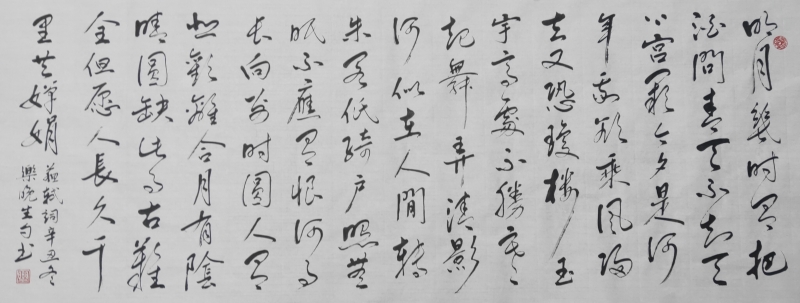 明月幾时有把
酒問青天不知天
上宮闕今夕是何
年我欲乘风归
去又恐瓊樓玉
宇高處不勝寒
起舞弄清影
何似在人間轉
朱阁低綺户照無
眠不應有恨何事
长向别时圆人有
悲歡離合月有陰
晴圆缺此事古難
全但愿人長久千
里共嬋娟
蘇軾詞辛丑冬
樂晚生句书